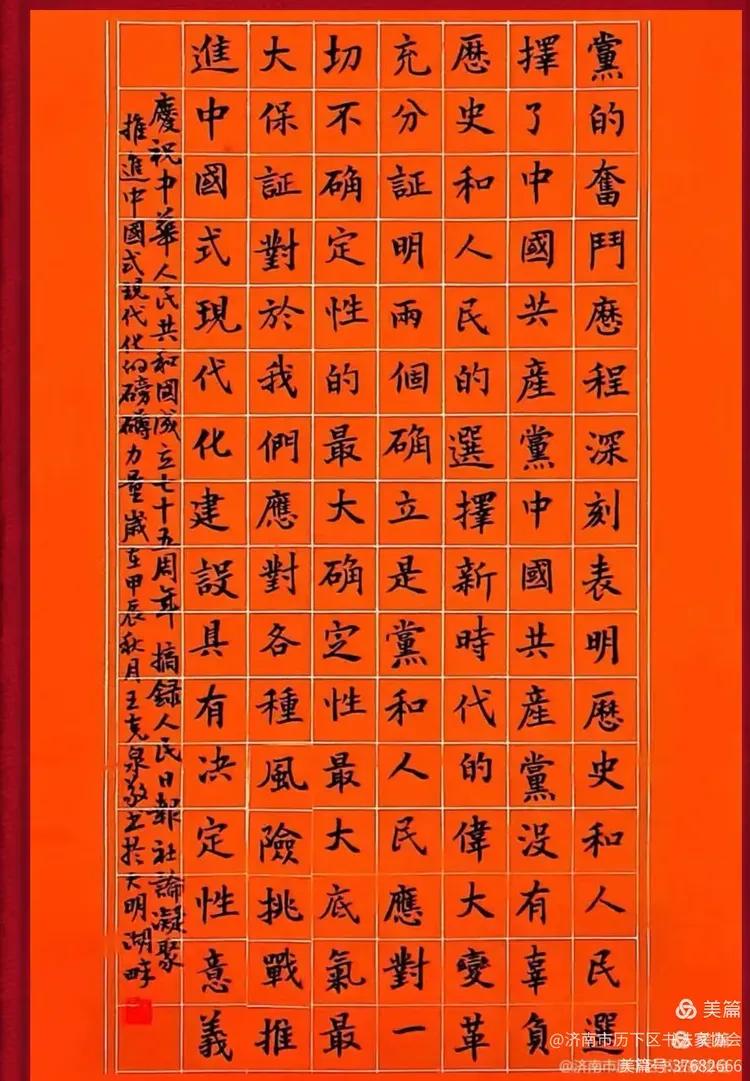 黨的奮鬥歷程深刻表明歷史和人民選
擇了中國共產黨中國共產黨没有辜負
歷史和人民的選擇新時代的偉大變革
充分証明兩個确立是黨和人民應對一
切不确定性的最大确定性最大底氣最
大保証對於我們應對各種風險挑戰推
進中國式現代化建設具有决定性意義
慶祝中華人民共和國成立七十五周年 摘録人民日報社論凝聚
推進中國式現代化的磅礴力量歲在甲辰秋月王克泉敬书於大明湖畔
美篇
@济南市历下区书法家协会
美篇号:37682666